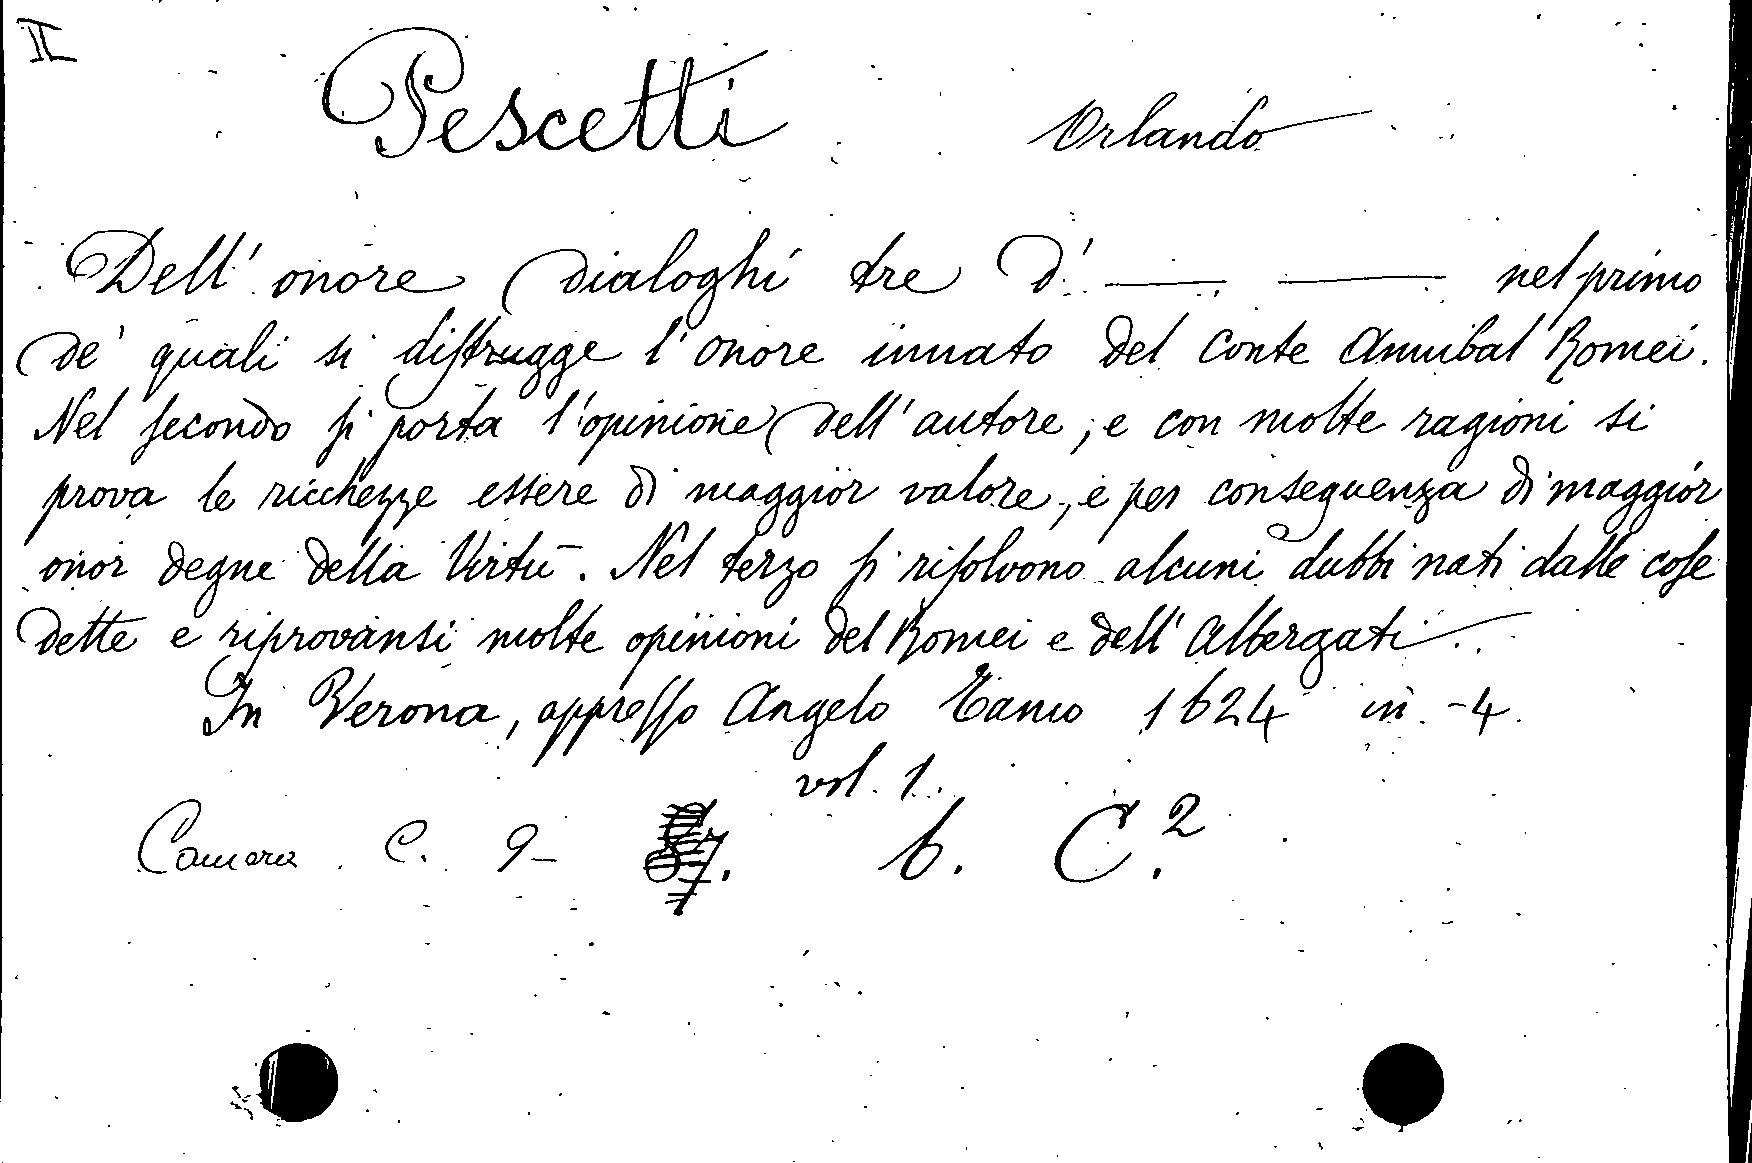 II
Pescetti Orlando
Dell' onore dialoghi tre d' —— —— nel primo
de' quali si distrugge l'onore innato del conte Annibal Romei.
Nel secondo si porta l'opinione dell' autore, e con molte ragioni si
prova le ricchezze essere di maggior valore, e per conseguenza di maggior
onor degne della Virtù. Nel terzo si risolvono alcuni dubbi nati dalle cose
dette e riprovansi molte opinioni del Romei e dell' Albergati.
In Verona, appresso Angelo Tamo 1624 in -4.
vol. 1.
Camera. C. 9- b. C.²